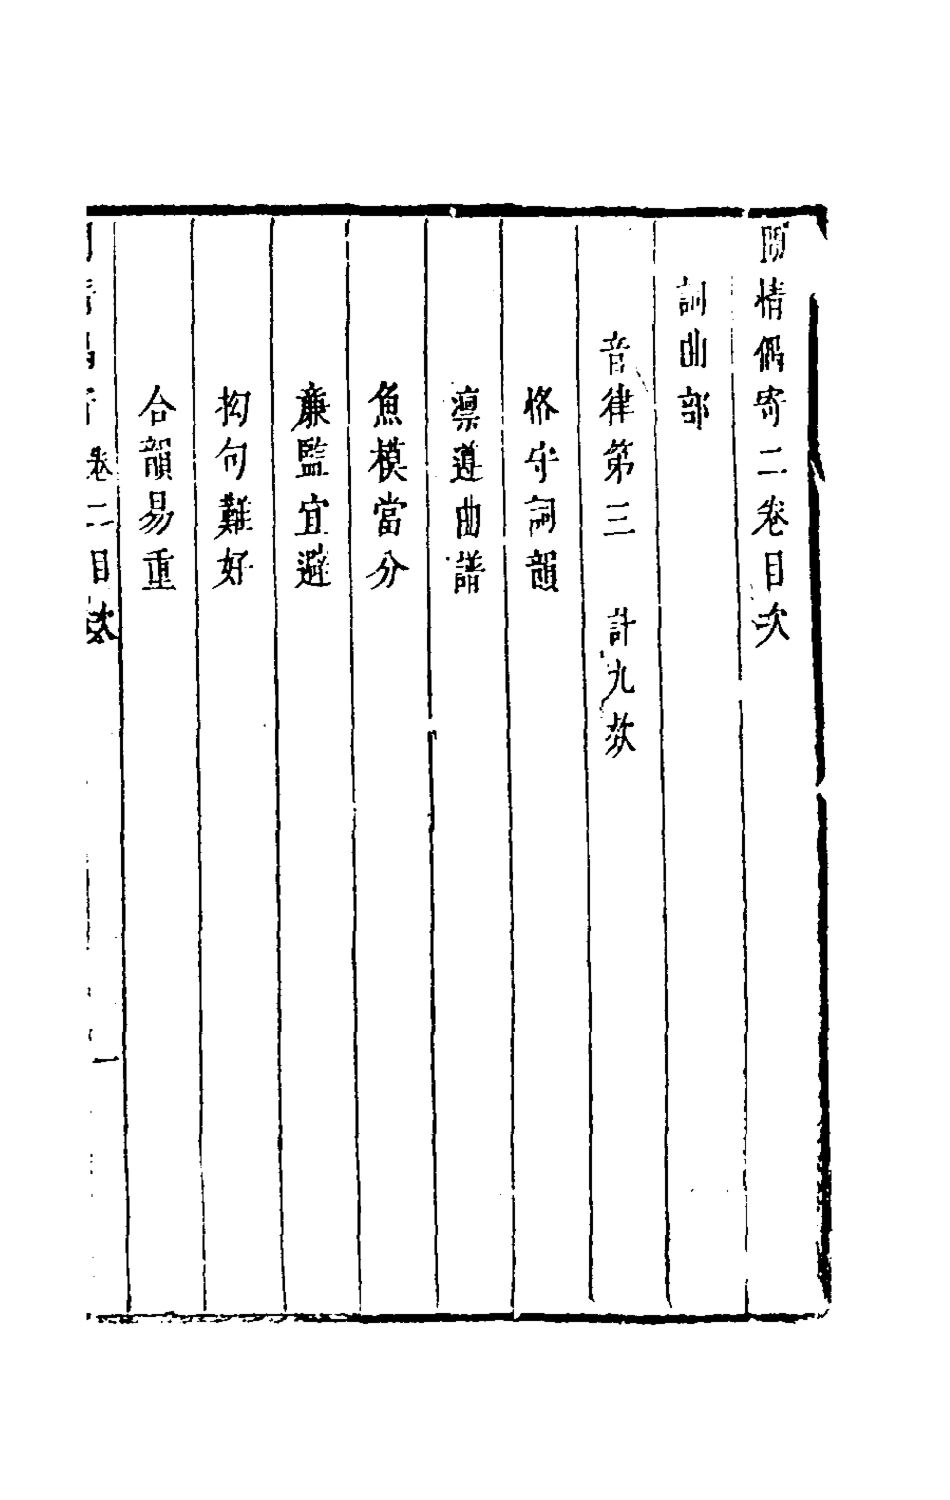 閒情偶寄二卷目次
詞曲部
音律第三　計九欵
恪守詞韻
凛遵曲譜
魚模當分
亷監宜避
拘句難好
合韻易重
卷二目次
一